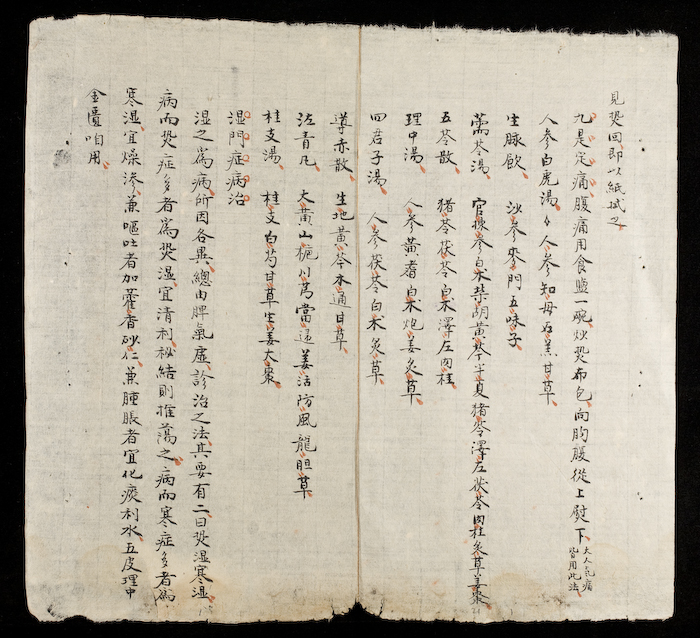 見熒回即以紙拭之
凡是定痛腹痛用食盐一碗炒熒布包向胸腹從上熨下大人氣痛皆用此法
人參白虎湯 人參知母石羔甘草
生脉飲 沙參麥門五味子
蒿苓湯 官揀參白朮柴胡黃芩半夏猪苓澤左茯苓肉桂炙草姜棗
五苓散 猪苓茯苓白朮澤左肉桂
理中湯 人參黃耆白朮炮姜炙草
四君子湯 人參茯苓白朮炙草
導赤散 生地黃芩木通甘草
法青凡 大黃山梔川芎當逯姜活防風龍胆草
桂支湯 桂支白芍甘草生姜大棗
湿門症病治
湿之為病所因各異總由脾氣虛診治之法其要有二曰熒湿寒湿
病而熒症多者為熒湿宜清利秘結則推蕩之病而寒症多者為
寒湿宜燥滲兼嘔吐者加藿香砂仁兼腫脹者宜化痰利水五皮理中
金匱咱用